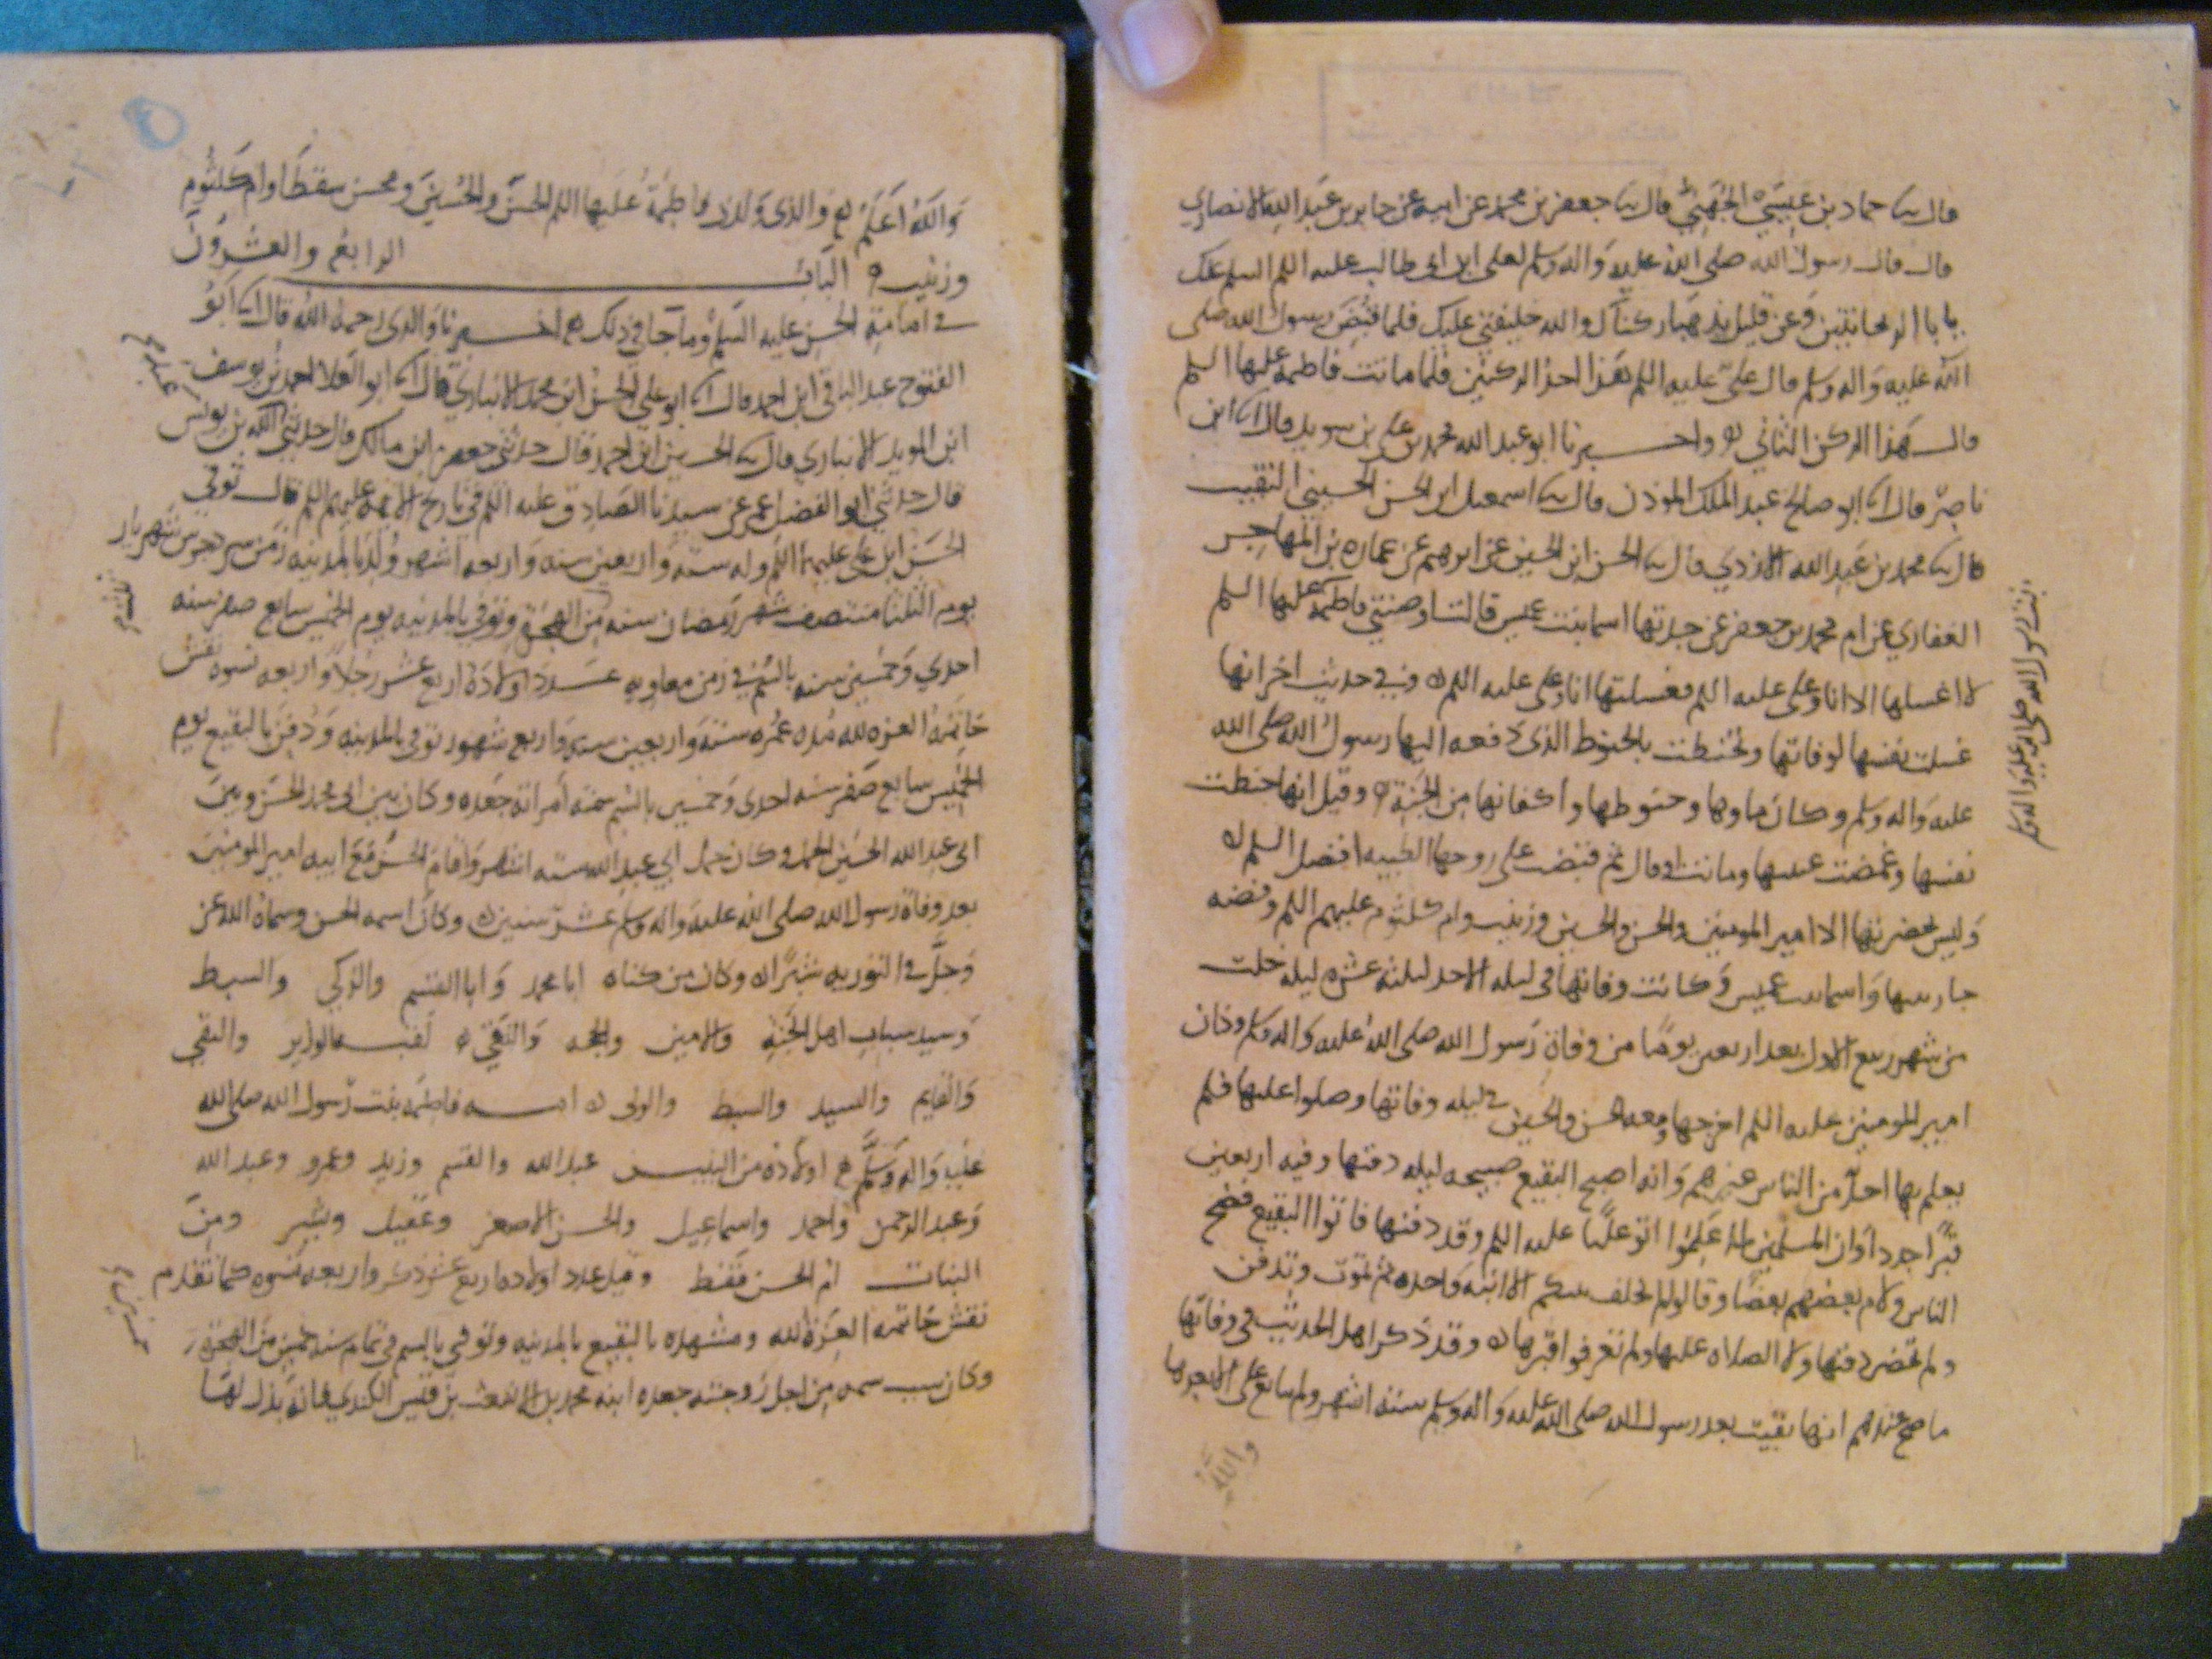 قال نا حماد بن عيسى الجهني قال نا جعفر بن محمد عن ابيه عن جابر بن عبد الله الانصاري
قال قال رسول الله صلى الله عليه واله وسلم لعلي ابن ابي طالب عليه السلم السلم عليك
يا با الريحانتين فعن قليل يذهب اركناك والله خليفتي عليك فلما قبض رسول الله صلى
الله عليه واله وسلم قال علي عليه السلم هذا احد الركنين فلما ماتت فاطمة عليها السلم
قال هذا الركن الثاني واخبرنا ابو عبد الله محمد بن علي بن سويد قال انا ابن
ناصر قال انا ابو صالح عبد الملك الموذن قال نا اسمعيل ابن الحسن الحسيني النقيب
قال نا محمد بن عبد الله الازدي قال نا الحسن ابن الحسين عن ابرهيم عن عماره بن المهاجر
الغفاري عن ام محمد بن جعفر عن جدتها اسما بنت عميس قالت اوصتني فاطمة عليها السلم
بنت رسول الله صلى الله عليه واله وسلم
لا اغسلها الا انا وعلي عليه السلم فغسلتها انا وعلي عليه السلم وفي حديث اخر انها
غسلت نفسها لوفاتها وتحنطت بالحنوط الذي دفعه اليها رسول الله صلى الله
عليه واله وسلم وكان ماوها وحنوطها واكفانها من الجنة وقيل انها حنطت
نفسها وغمضت عينيها وماتت قال ثم قبضت على روحها الطيبه افضل السلم
وليس بحضرتها الا امير المومنين والحسن والحسين وزينب وام كلثوم عليهم السلم وفضه
جاريتها واسما بنت عميس وكانت وفاتها في ليله الاحد لثلثة عشره ليله خلت
من شهر ربيع الاول بعد اربعين يوما من وفاة رسول الله صلى الله عليه واله وسلم وكان
امير المومنين عليه السلم اخرجها ومعه الحسن والحسين في ليله وفاتها وصلوا عليها فلم
يعلم بها احد من الناس غيرهم وانه اصبح البقيع صبيحه ليله دفنها وفيه اربعين
قبرا جددا وان المسلمين لما علموا اتوا عليا عليه السلم وقد دفنها فاتوا البقيع فضج
الناس ولام بعضهم بعضا وقالوا لم تخلف بينكم الا ابنه واحده ثم تموت وتدفن
ولم تحضر دفنها ولا الصلاه عليها ولم تعرفوا قبرها وقد ذكر اهل الحديث في وفاتها
ما صح عندهم انها بقيت بعد رسول الله صلى الله عليه واله وسلم سته اشهر ولم يبايع علي الا بعدها
والله
والله اعلم والذي ولدت فاطمة عليها السلم الحسن والحسين ومحسن سقطا وام كلثوم
وزينب الباب الرابع والعشرون
في امامة الحسن عليه السلم وما جا في ذلك اخبرنا والدي رحمه الله قال انا ابو
الفتوح عبد الباقي ابن احمد قال انا ابو علي الحسن ابن محمد الانباري قال انا ابو العلا احمد بن يوسف
ابن المويد الانباري قال نا الحسين ابن احمد قال حدثني جعفر ابن مالك قال حدثني عبد الله بن يونس
قال حدثني ابو الفضل عمر عن سيدنا الصادق عليه السلم في تاريخ الائمه عليهم السلم قال توفي
الحسن ابن علي عليهما السلم وله سته واربعين سنه واربعه اشهر ولد بالمدينه زمن يزدجرد بن شهريار
يوم الثلثا منتصف شهر رمضان سنه من الهجرة وتوفي بالمدينه يوم الخميس سابع صفر سنه
احدي وخمسين سنه بالسم في زمن معاويه عدد اولاده اربع عشر رجلا واربعه نسوه نقش
خاتمه العزه لله مده عمره سته واربعين سنه واربع شهور توفي بالمدينه ودفن بالبقيع يوم
الخميس سابع صفر سنه احدى وخمسين بالسم سمته امراته جعده وكان بين ابي محمد الحسن وبين
ابي عبد الله الحسين الحمل وكان حمل ابي عبد الله سته اشهر واقام الحسن مع ابيه امير المومنين
بعد وفاة رسول الله صلى الله عليه واله وسلم عشر سنين وكان اسمه الحسن وسماه الله عز
وجل في التوريه شبرا وكان من كناه ابا محمد وابا القسم والزكي والسبط
وسيد شباب اهل الجنة والامين والحجه والتقي لقبه الوزير والنقي
والقايم والسيد والسبط والولي امه فاطمة بنت رسول الله صلى الله
عليه واله وسلم اولاده من البنين عبد الله والقسم وزيد وعمرو وعبد الله
وعبد الرحمن واحمد واسماعيل والحسن الاصغر وعقيل وبشر ومن
البنات ام الحسن فقط وقيل عدد اولاده اربع عشر ذكر واربعه نسوه كما تقدم
نقش خاتمه العزة لله ومشهده بالبقيع بالمدينه وتوفي بالسم في تمام سنه خمسين من الهجرة
وكان سبب سمه من اجل زوجته جعده ابنه محمد بن الاشعث بن قيس الكندي فانه بذل لها